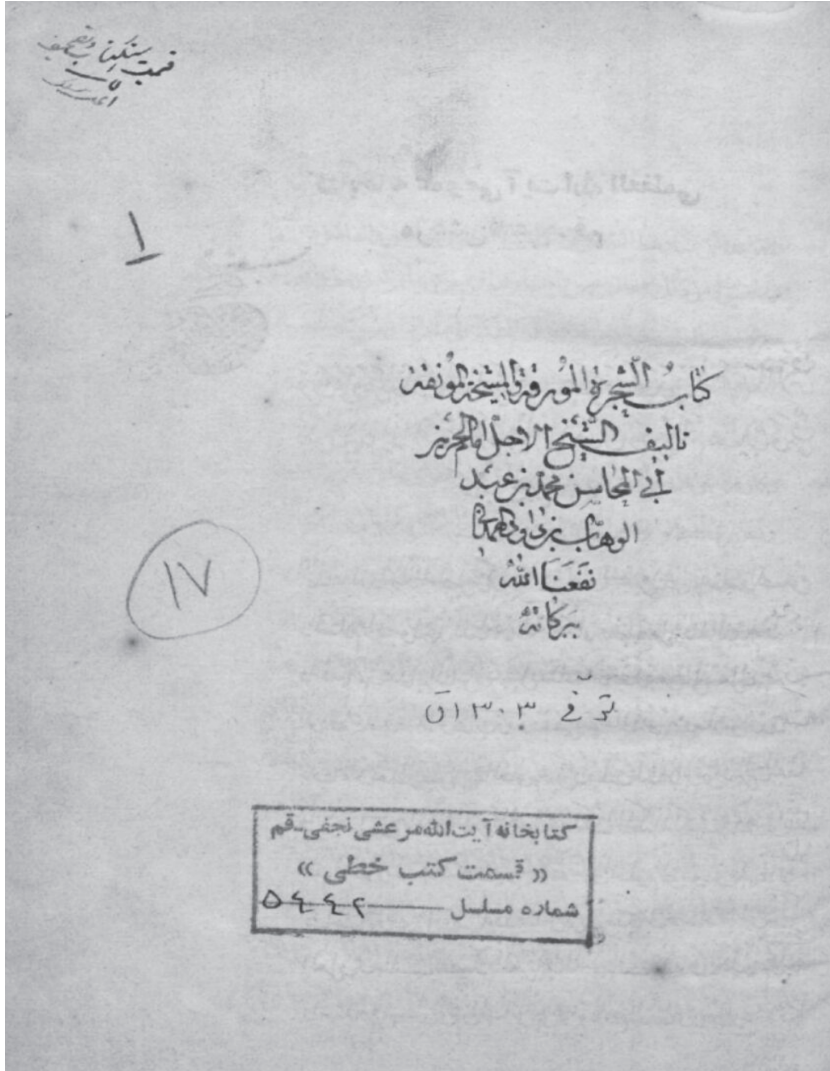 ١
كتاب الشجرة المورقة والمشيخة المونقة
تاليف الشيخ الاجل امام الحرمين
أبي المحاسن محمد بن عبد
الوهاب بن داود الهمداني
نفعنا الله
ببركاته
١٧
توفي ١٣٠٣ق
كتابخانه آيت الله مرعشي نجفي - قم
« قسمت كتب خطي »
شماره مسلسل ٥٤٤٢